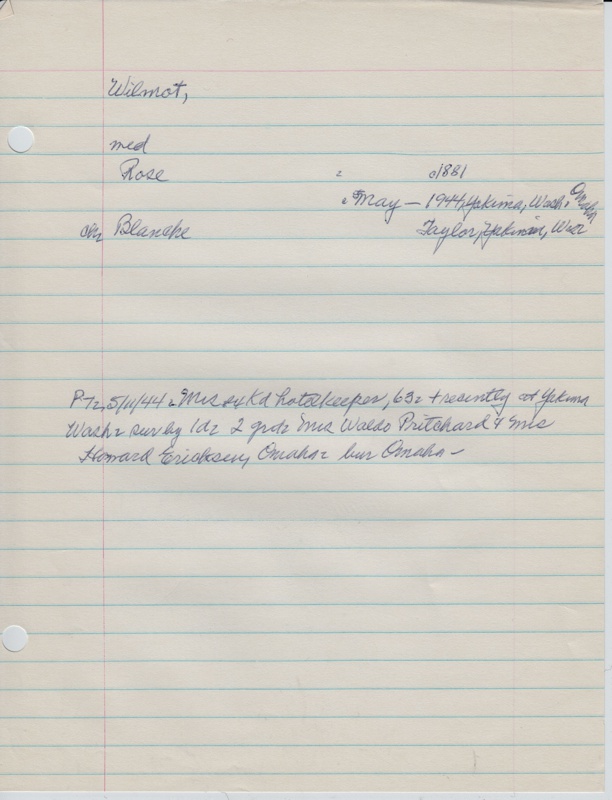 Wilmot,
med
Rose c1881
May – 1944, Yakima, Wash. Omaha
chn Blanche Taylor, Yakima, Wash
P-T 5/11/44 Mrs ex Kd hotelkeeper, 63 + recently at Yakima
Wash surv by 1d 2 grd Mrs Waldo Pritchard & Mrs
Howard Ericksen, Omaha bur Omaha –